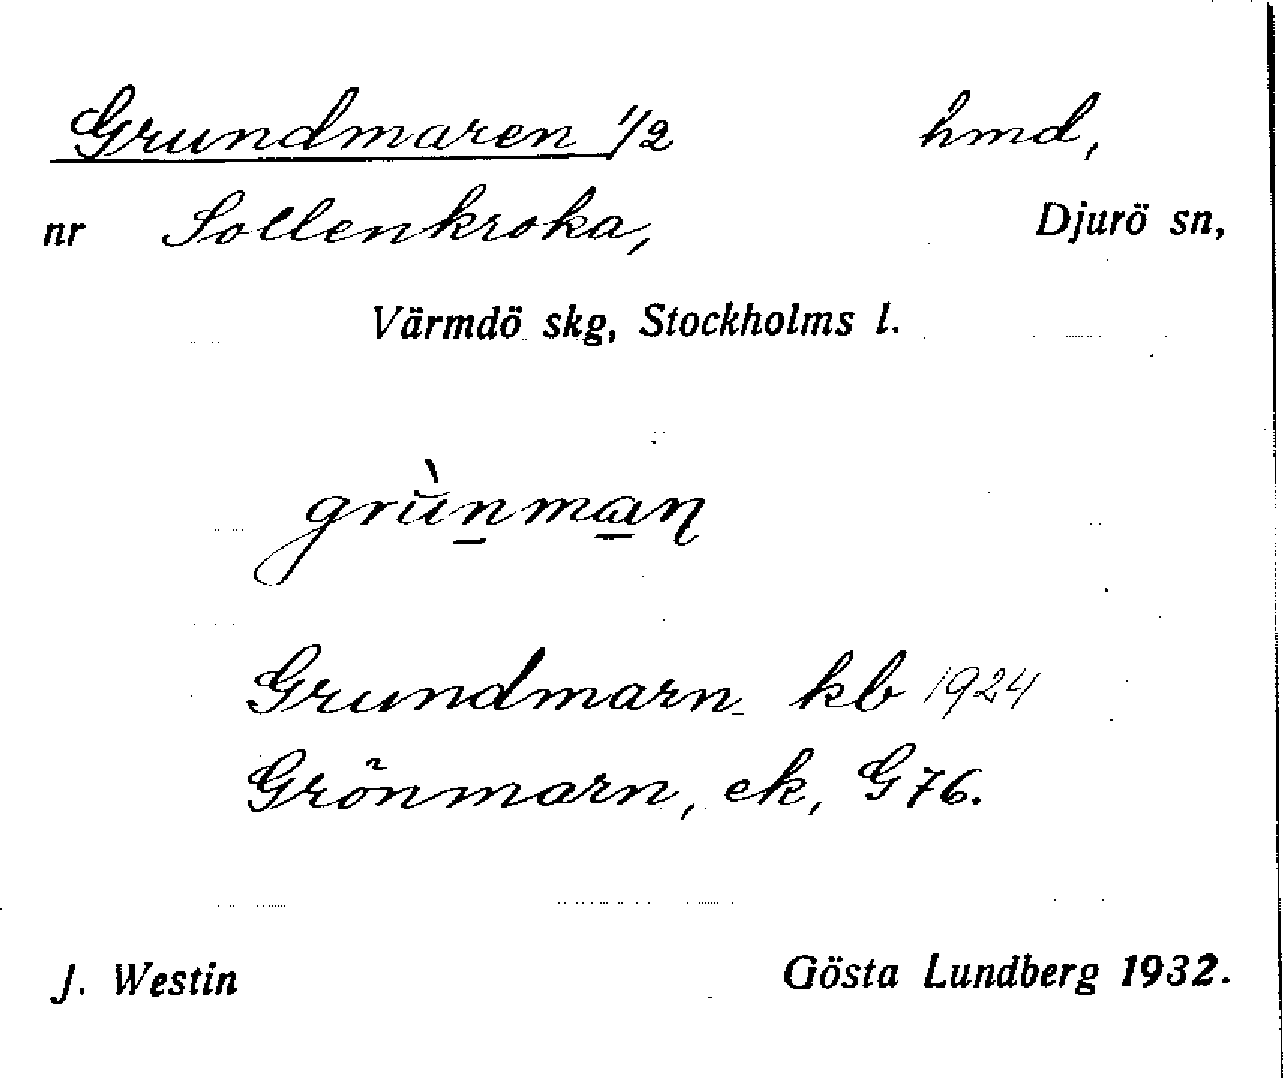 Grundmaren 1/2 hmd,
nr Sollenkroka, Djurö sn,
Värmdö skg, Stockholms l.
grùnmaɳ
Grundmarn kb 1924
Grönmarn, ek, G 76.
J. Westin Gösta Lundberg 1932.